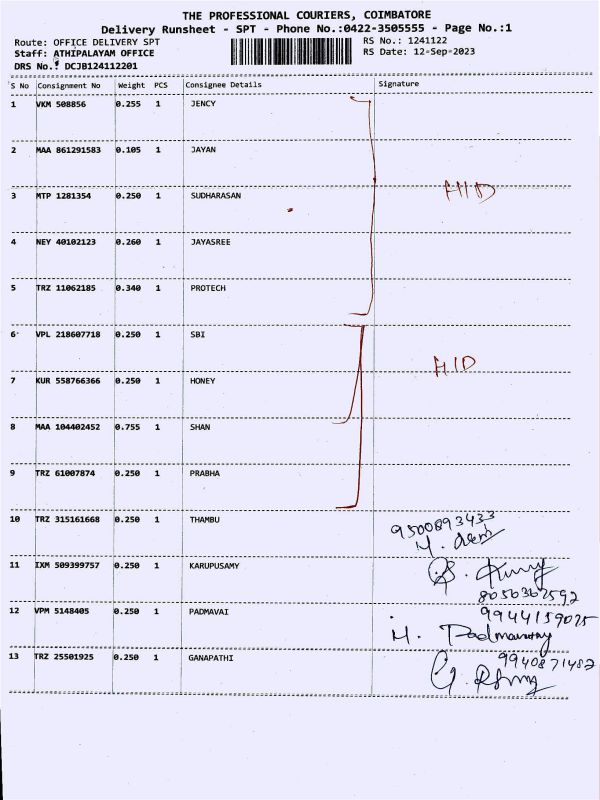 THE PROFESSIONAL COURIERS, COIMBATORE
Delivery Runsheet - SPT - Phone No.:0422-3505555 - Page No.:1
Route: OFFICE DELIVERY SPT RS No.: 1241122
Staff: ATHIPALAYAM OFFICE RS Date: 12-Sep-2023
DRS No.: DCJB124112201
S No Consignment No Weight PCS Consignee Details Signature
1 VKM 508856 0.255 1 JENCY
2 MAA 861291583 0.105 1 JAYAN
3 MTP 1281354 0.250 1 SUDHARASAN
HID
4 NEY 40102123 0.260 1 JAYASREE
5 TRZ 11062185 0.340 1 PROTECH
6 VPL 218607718 0.250 1 SBI
HID
7 KUR 558766366 0.250 1 HONEY
8 MAA 104402452 0.755 1 SHAN
9 TRZ 61007874 0.250 1 PRABHA
10 TRZ 315161668 0.250 1 THAMBU
9500893433
M.
11 IXM 509399757 0.250 1 KARUPUSAMY
8056362592
12 VPM 5148405 0.250 1 PADMAVAI
9944159025
M.
13 TRZ 25501925 0.250 1 GANAPATHI
9940871482
G.